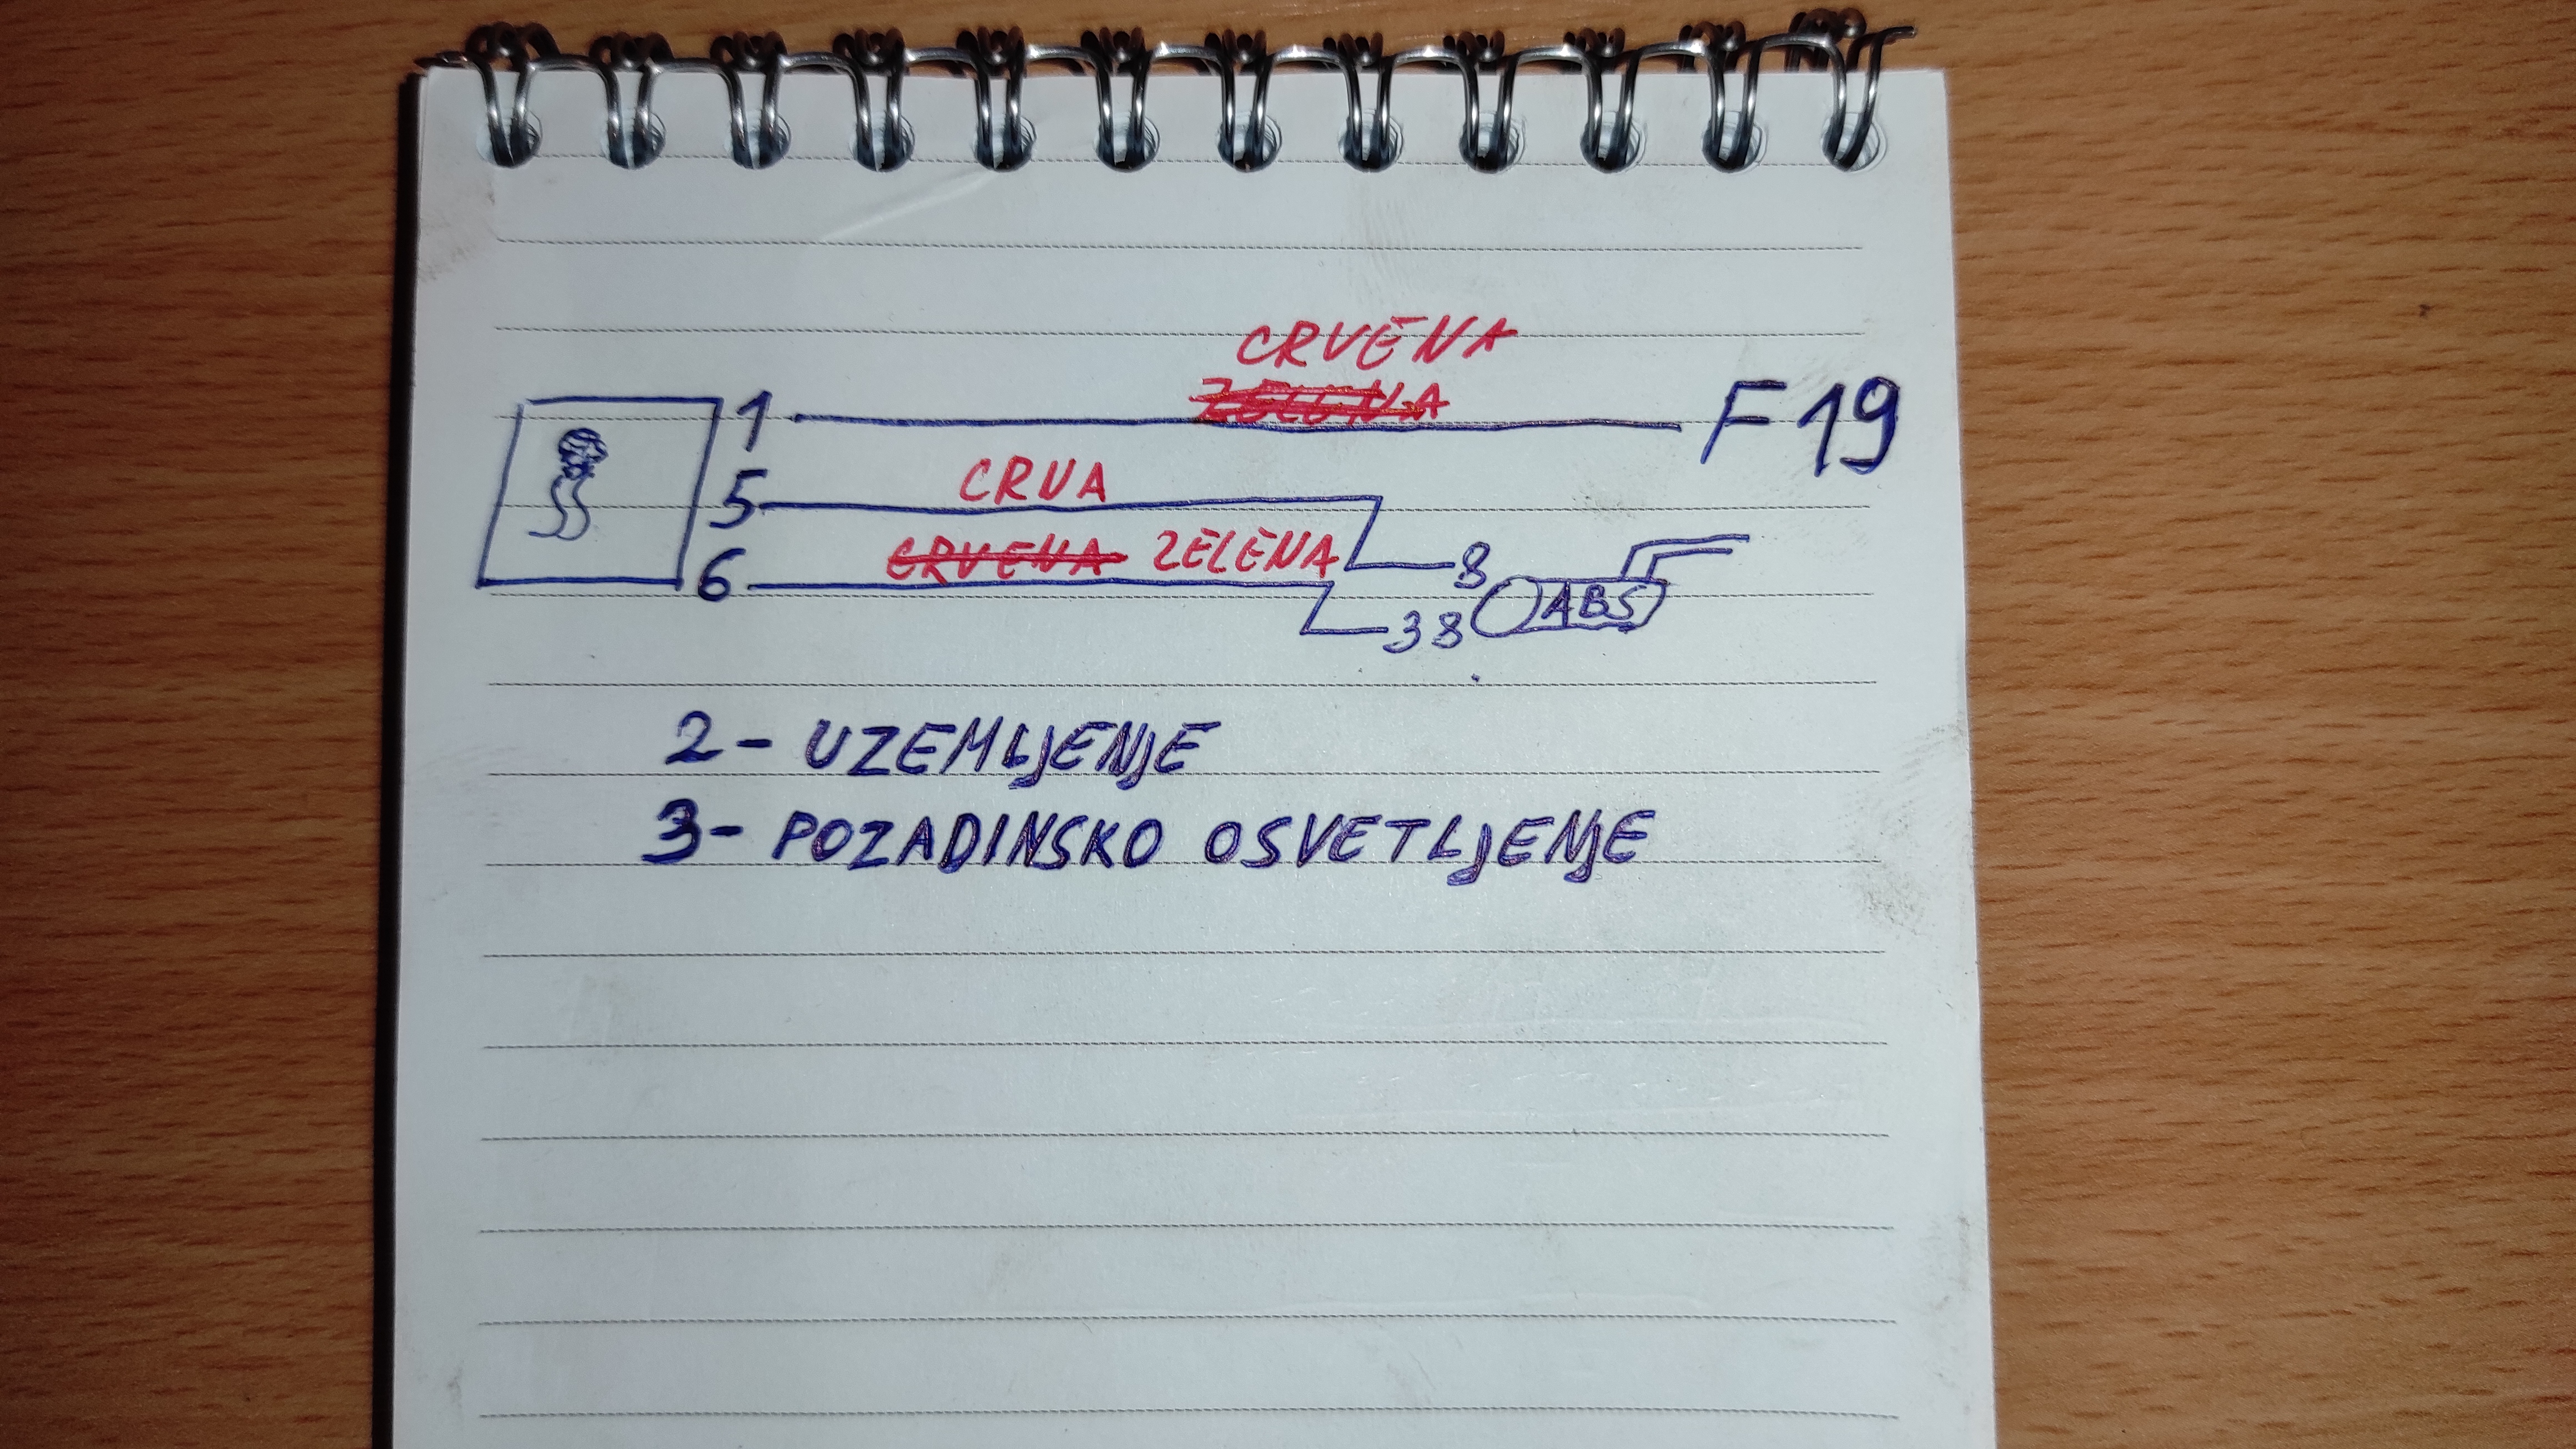 CRVENA
1 ZELENA F19
5 CRVA
6 CRVENA ZELENA 8
38 ABS
2- UZEMLJENJE
3- POZADINSKO OSVETLJENJE